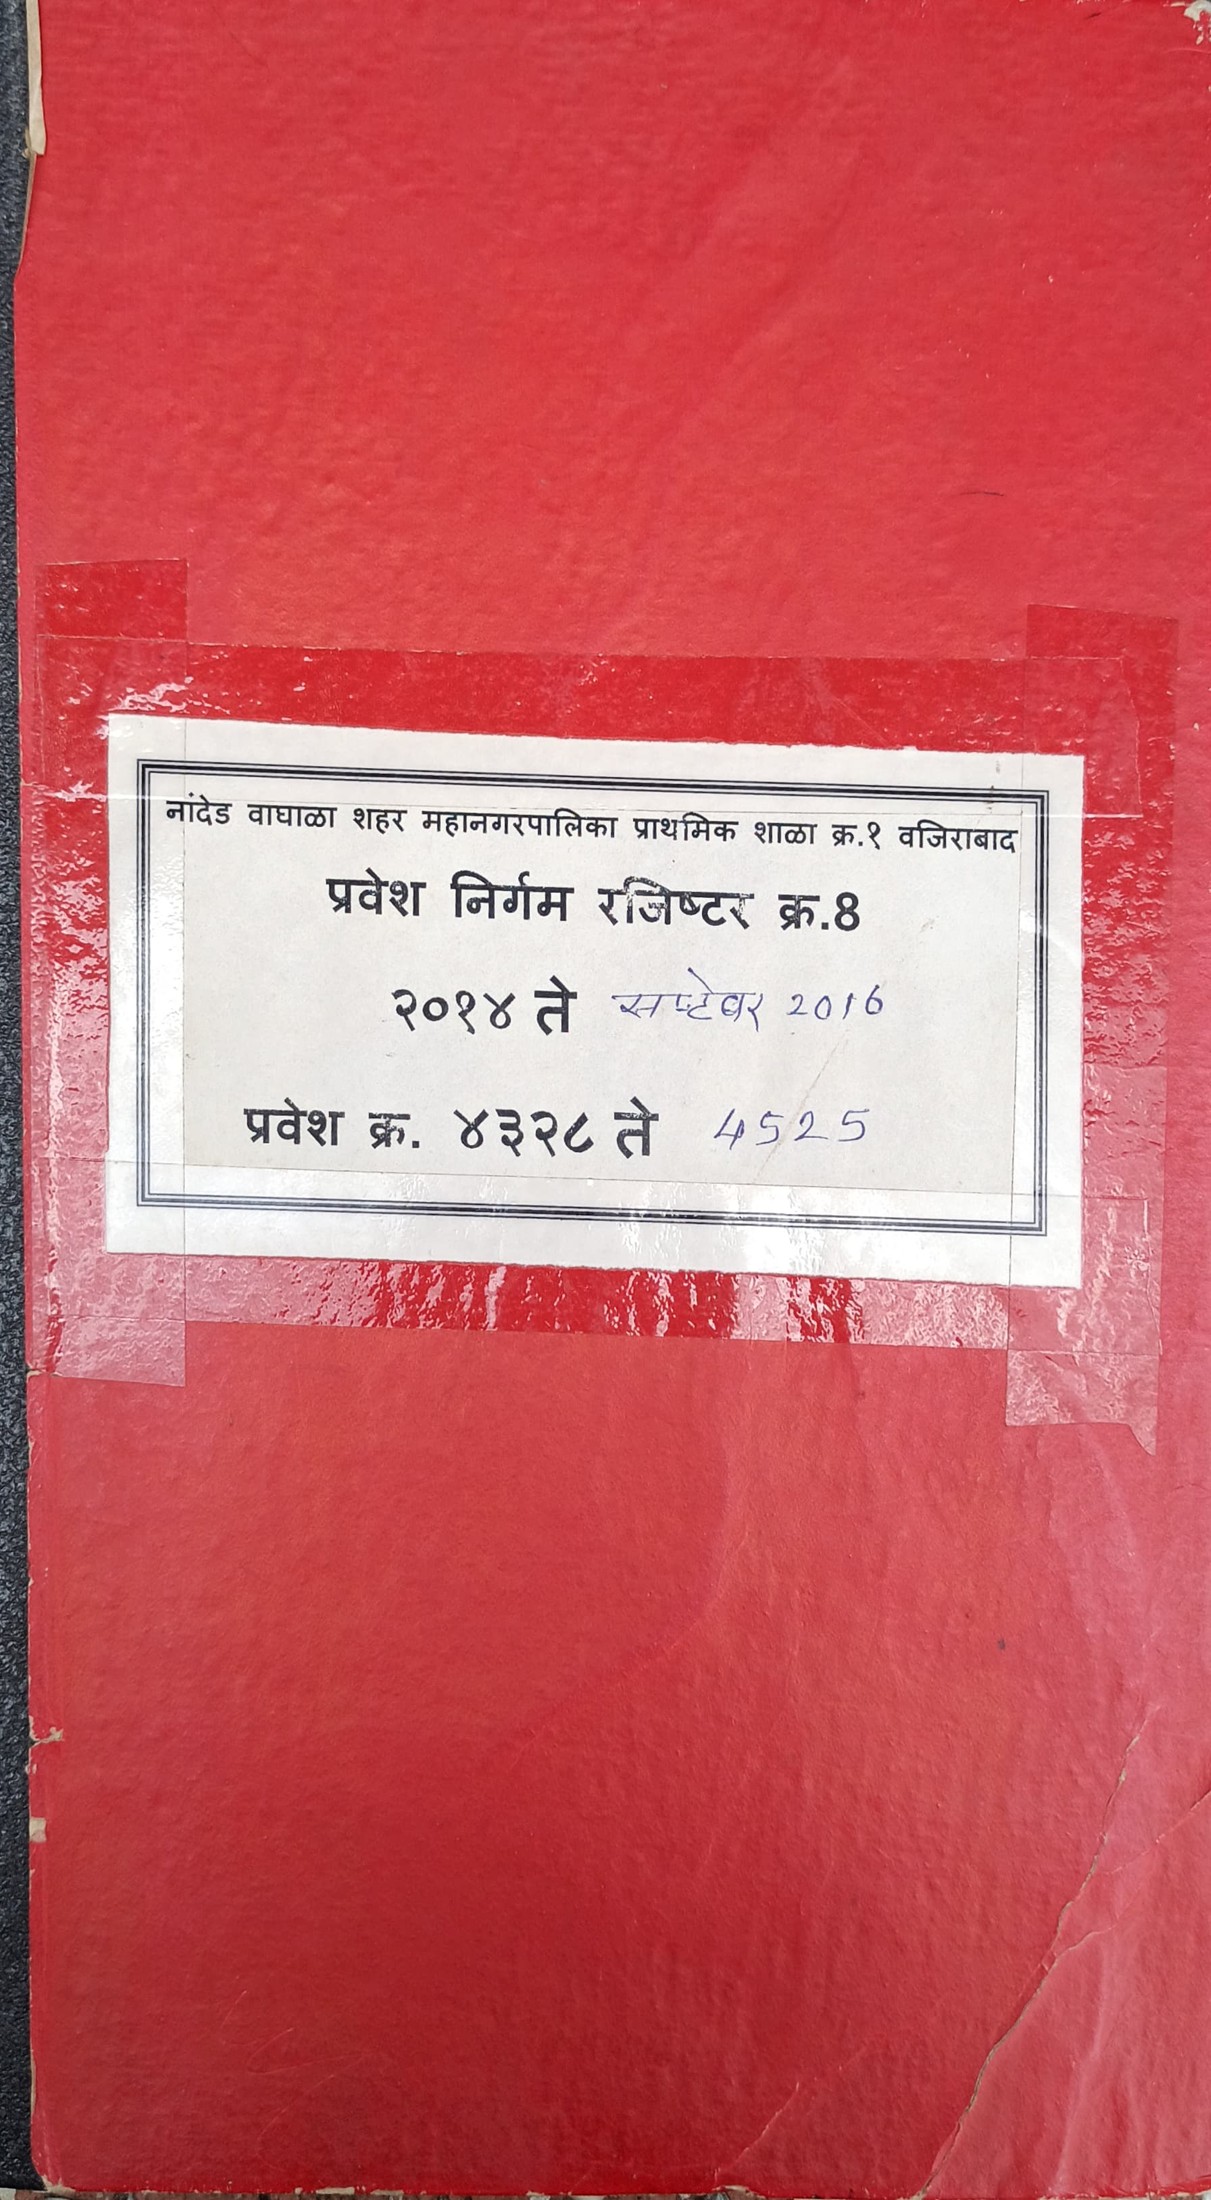 नांदेड वाघाळा शहर महानगरपालिका प्राथमिक शाळा क्र.१ वजिराबाद
प्रवेश निर्गम रजिष्टर क्र.8
२०१४ ते सप्टेबर 2016
प्रवेश क्र. ४३२८ ते 4525